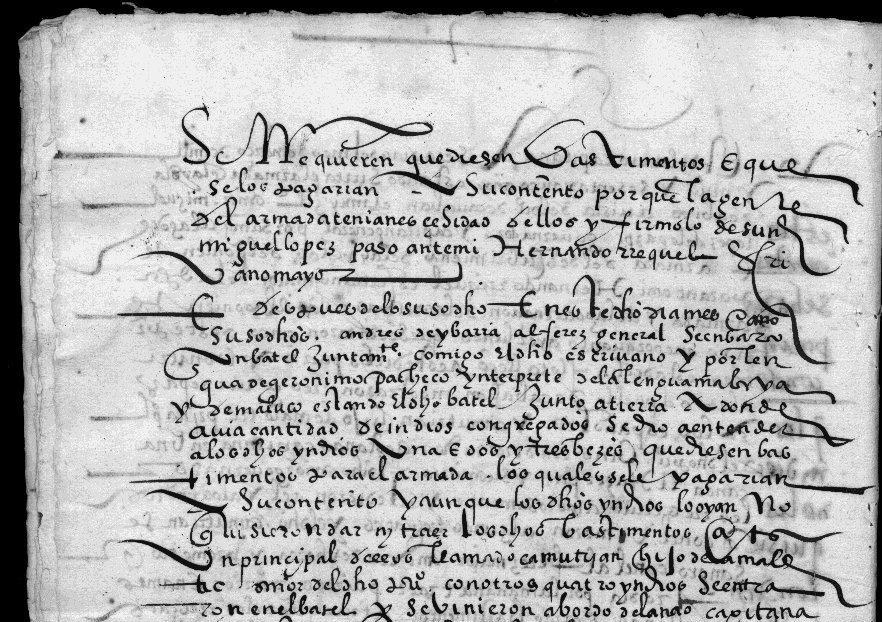 Se Requieren que diesen bastimentos E que
se los pagarian A su contento porque la gente
del armada tenia nescesidad dellos y firmolo de su nre
miguel lopez paso ante mi Hernando rriquel Escri
vano mayor
E despues de lo susodho En este dho dia mes E año
susodhos. andres de ybarra alferez general se enbarco
En un batel Juntamte. comigo el dho escrivano y por len
gua de geronimo Pacheco ynterprete de la lengua malaya
y de maluco estando el dho batel Junto a tierra A donde
avia cantidad de indios congregados se dio a entender
a los dhos yndios Una E dos y tres bezes, que diesen bas
timentos para el armada los quales se le pagarian
A su contento y aunque los dhos yndios lo oyan No
quisieron dar ny traer los dhos bastimentos
Un principal dellos llamado camutuan hijo de
del dho con otros quatro yndios se entra
ron en el batel y se vinieron a bordo de la nao capitana